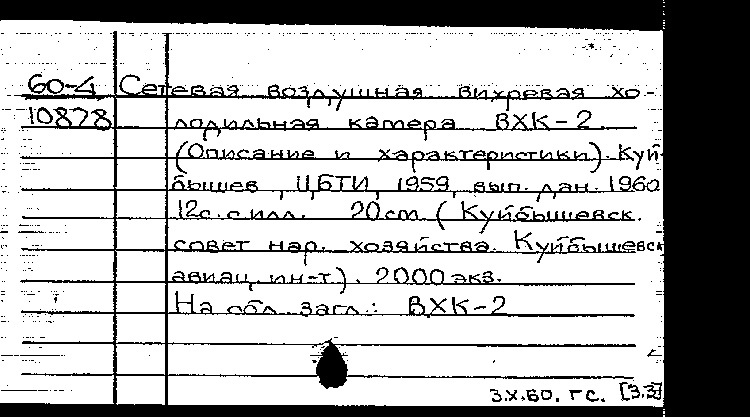 60-4 Сетевая воздушная вихревая хо-
10878 лодильная камера ВХК-2.
(Описание и характеристики). Куй-
бышев, ЦБТИ, 1959, вып. дан. 1960
12с. с илл. 20см. (Куйбышевск.
совет нар. хозяйства. Куйбышевск
авиац. ин-т). 2000 экз.
На обл. загл.: ВХК-2
3.X.60. ГС. [3.3]